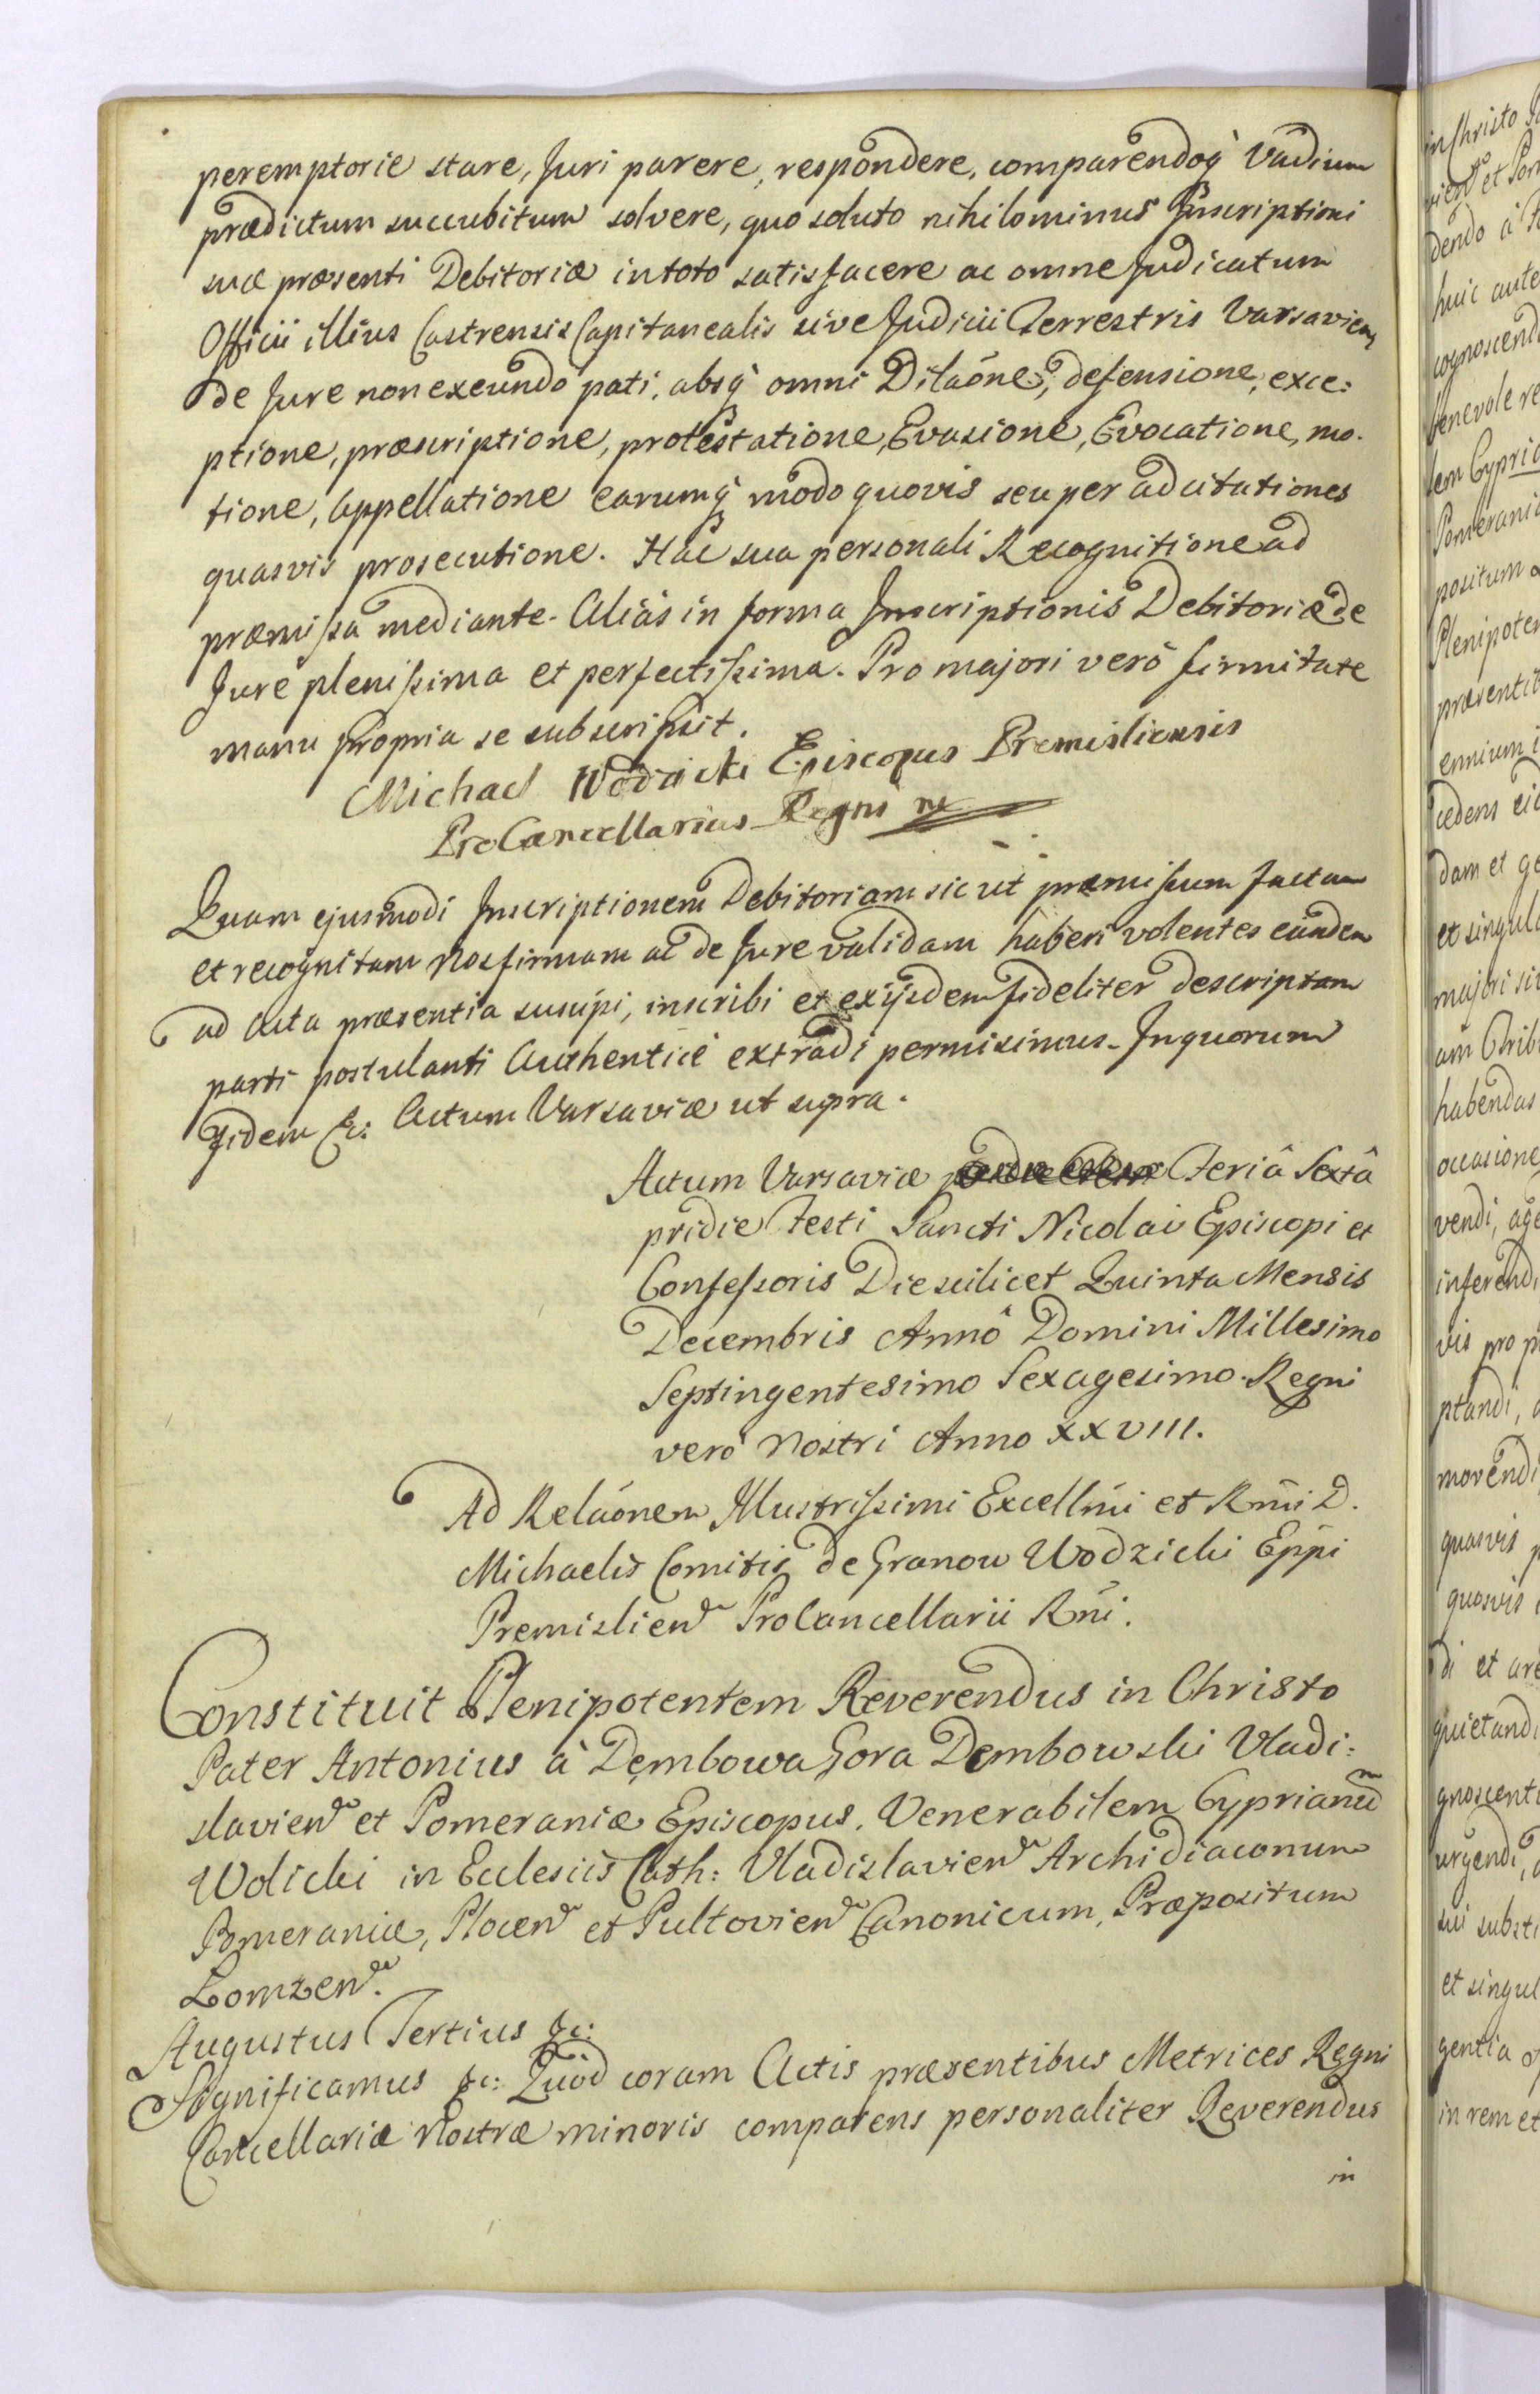 peremptorie stare, Juri parere, respondere, comparendoq̀ Vadium
prædictum succubitum solvere, quo soluto nihilominus Inscriptioni
suæ præsenti Debitoriæ in toto satisfacere ac omne Judicatum
Officii illius Castrensis Capitanealis sive Judicii Terrestris Varsavien
de Jure non exeundo pati, absq̀ omni Dilaōne, defensione, exce:
ptione, præscriptione, protestatione, Evasione, Evocatione, mo-
tione, Appellatione earumq̀ modo quovis seu per adcitationes
quasvis prosecutione. Hac sua personali Recognitione ad
præmissa mediante. Aliàs in forma Inscriptionis Debitoriæ de
Jure plenissima et perfectissima. Pro majori verò firmitate
manu propria se subscripsit.
Michael Wodzicki Episcopus Premisliensis
ProCancellarius Regni
Quam ejusmodi Inscriptionem Debitoriam sic ut præmissum factam
et recognitam Nos firmam ac de Jure validam haberi volentes eandem
ad Acta præsentia suscipi, inscribi et exijsdem fideliter descriptam
parti postulanti Authenticè extradi permisimus. In quorum
fidem &c: Actum Varsaviæ ut supra.
Actum Varsaviæ Feriâ Sextâ
pridie Festi Sancti Nicolai Episcopi et
Confessoris Die scilicet Quinta Mensis
Decembris Annô Domini Millesimo
Septingentesimo Sexagesimo. Regni
verò Nostri Anno XXVIII.
Ad Relaōnem Illustrissimi Excellm̄i et Rm̄i D.
Michaelis Comitis de Granow Wodzicki Epp̄i
Premislien ProCancellarii Rn̄i.
Constituit Plenipotentem Reverendus in Christo
Pater Antonius à Dembowa Gora Dembowski Vladi:
slavien et Pomeraniæ Episcopus, Venerabilem Cyprianum
Wolicki in Ecclesiis Cath: Vladislavien Archidiaconum
Pomeraniæ, Plocen et Pultovien Canonicum, Præpositum
Lomzen.
Augustus Tertius &c:
Significamus &c: Quod coram Actis præsentibus Metrices Regni
Cancellariæ Nostræ minoris comparens personaliter Reverendus
in